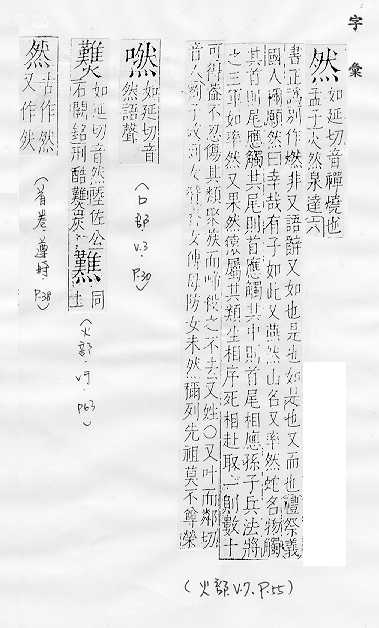 字彙
然 如延切音禪燒也
孟子火然泉達六
書正譌別作燃非又語辭又如也是也如是也又而也禮祭義
國人稱願然曰幸哉有子如此又燕然山名又率然蛇名物觸
其首則尾應觸其尾則首應觸其中則首尾相應孫子兵法將
之三軍如率然又果然猿屬其類生相序死相赴取一則數十
可得蓋不忍傷其類聚族而啼殺之不去又姓○又叶而鄰切
音人劉子政列女女傅母防女未然稱列先祖莫不尊榮
(火部V.7.P.55)
嘫 如延切音
然語聲
(口部V.3.P.30)
㸐 如延切音然陸佐公
石闕銘刑酷㸐炭 同
上
(火部.V.7.P.63)
然 古作然
又作
(首卷遵時P.38)